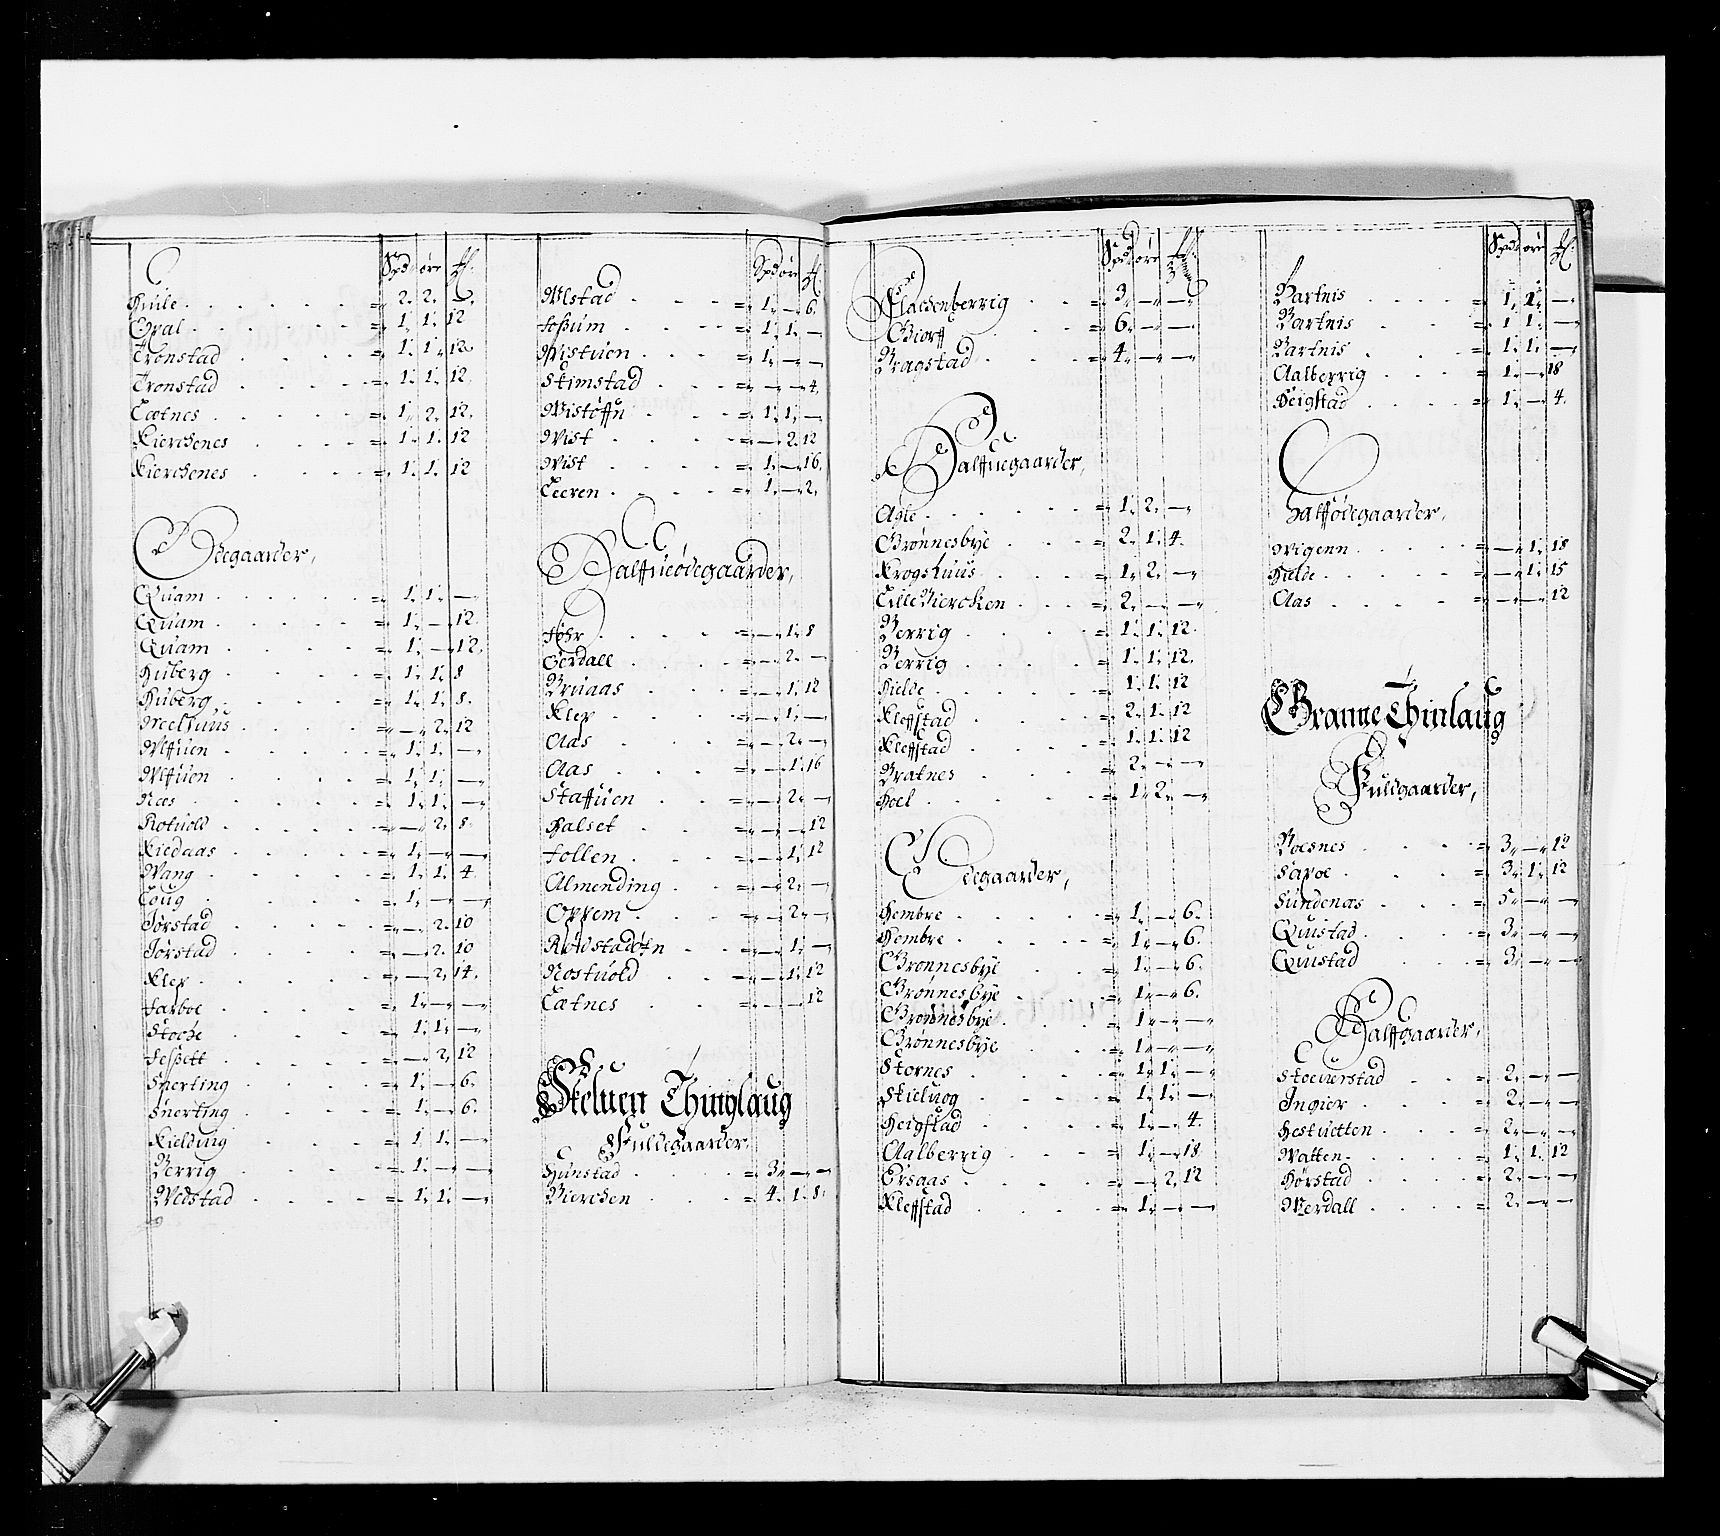 Spd ore ₶.
Hule . . . . . . = 2. 2. —
Opal . . . . . = 1. 1. 12
Tronstad . . . . = 1. 1. 12.
Tronstad . . . . = 1. 1. 12.
Tætnes . . . . . = 1. 2. 12.
Kierchenes . . . . = 1. 1. 12
Kierchenes . . . . = 1. 1. 12
Ødegaarder,
Quam . . . . . = 1. 1. —
Quam . . . . . = 1. — 12.
Quam . . . . . = 1. — 12.
Huberg . . . . . = 1. 1. 8
Huberg . . . . . = 1. 1. 8.
Meelhuus . . . . = — 2. 12
Wffuen . . . . . = 1. 1. —
Wffuen . . . . . = 1. 1. —
Næs . . . . . = 1. 1. —
Rotuold . . . . . = — 2. 8.
Kiedaas . . . . . = 1. — —
Wang . . . . . = 1. 1. 4.
Loug . . . . . = 1. — —
Jørstad . . . . . = — 2. 10
Jørstad . . . . . = — 2. 10
Klep . . . . . = — 2. 14.
Farboe . . . . . = 1. — —
Stoche . . . . . = 1. 1. —
Seßett . . . . . = — 2. 12
Snerting . . . . = 1. — 6.
Snerting . . . . = 1. — 6.
Kielding . . . . = 1. 1. —
Berrig . . . . . = 1. — —
Wedstad . . . . = 1. 1. —
Spd ore ₶.
Wlstad . . . = 1. — 6.
Foßum . . . . = 1. 1. —
Wistuen . . . . = 1. — —
Skimstad . . . = — — 4.
Wistøffn . . . = 1. 1. —
Wist . . . . = — 2. 12
Wist . . . . = 1. — 16.
Leeren . . . . = 1. — 2.
Halffueødegaarder,
Føhr . . . . = — 1. 8
Oerdall . . . . = — 2. —
Bruaas . . . . = — 1. 12
Klep . . . . = — 1. —
Aas . . . . = — 2. —
Aas . . . . = — 1. 16
Staffuen . . . = — 2. —
Halset . . . = — — 12
Follen . . . = — 1. 12
Almending . . . = — 2. —
Oppem . . . = — 2. —
Rødstadøtn . . = — 1. —
Nostuold . . . = — 1. 12
Tætnes . . . = — — 12
Skeluen Thinglaug
Fuldegaarder.
Hunstad . . . = 3. — —
Bierchen . . . = 4. 1. 8.
Spd ore ₶.
Flachenberrig . . = 3. — —
Giorff . . . = 6. — —
Bragstad . . . = 4. — —
Halffuegaarder,
Agle . . . . . = 1. 2. —
Grønnesbye . . . = 2. 1. 4.
Krogshuus . . . = 1. 2. —
LilleBiercken . . . = 2. — —
Berrig . . . . = 1. 1. 12.
Berrig . . . . = 1. 1. 12.
Hielde . . . . = 1. 1. 12
Kleffstad . . . = 2. 1. 12
Kleffstad . . . = 1. 1. 12
Bratnes . . . . = 2. — —
Hoel . . . . . = 1. 2. —
Ødegaarder,
Hembre . . . . = 1. — 6.
Hembre . . . . = 1. — 6.
Grønnesbye . . . = 1. — 6.
Grønnesbye . . . = 1. — 6.
Grønnesbye . . . = 1. — —
Grønnesbye . . . = 1. — —
Stornes . . . . = 1. 1. —
Skieluog . . . . = 1. 1. —
Heigstad . . . . = 1. — 4.
Aalberrig . . . = 1. — 18.
Ersaas . . . . = — 2. 12
Kleffstad . . . . = 1. — —
Spd ore ₶.
Bartnis . . . . = 1. 1. —
Bartnis . . . . = 1. 1. —
Bartnis . . . . = 1. 1. —
Aalberrig . . . . = 1. — 18
Heigstad . . . . = 1. — 4.
Halffødegaarder,
Wigenn . . . . = — 1. 18
Hielde . . . . = — 1. 15
Aas . . . . = — — 12
Granne Thinlaug
Fuldgaarder,
Boesnes . . . . = 3. — 12
Sapoe . . . . = 3. 1. 12
Sundenæs . . . = 5. — —
Quistad . . . . = 3. — —
Quistad . . . . = 3. — —
Halffgaarder,
Stoeverstad . . . = 2. — —
Jngier . . . . = 2. — —
Hestuetten . . . = 2. — —
Watten . . . . = 1. 1. 12
Hørstad . . . . = 2. — —
Werdall . . . . = 2. — —